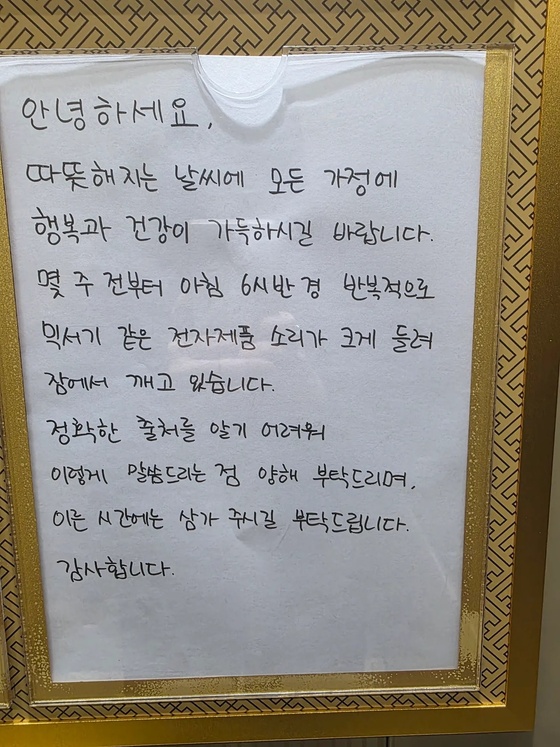 안녕하세요.
따뜻해지는 날씨에 모든 가정에
행복과 건강이 가득하시길 바랍니다.
몇 주 전부터 아침 6시반 경 반복적으로
믹서기 같은 전자제품 소리가 크게 들려
잠에서 깨고 있습니다.
정확한 출처를 알기 어려워
이렇게 말씀드리는 점 양해 부탁드리며,
이른 시간에는 삼가 주시길 부탁드립니다.
감사합니다.